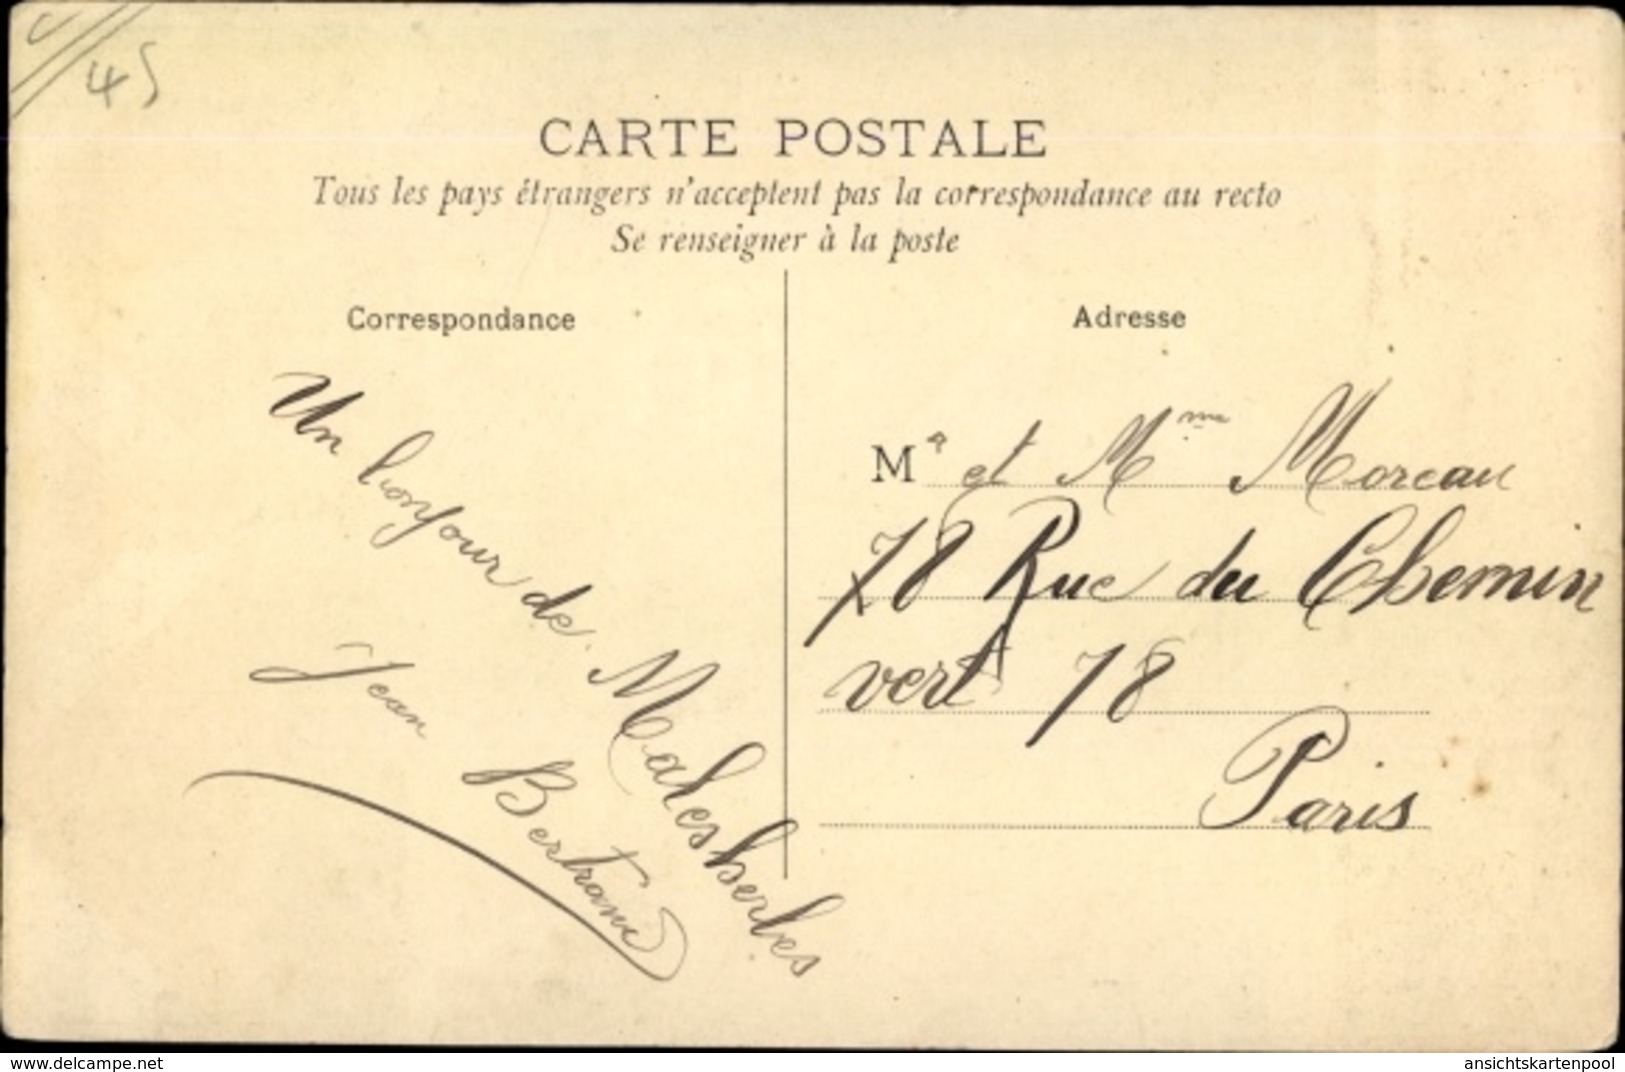 45
CARTE POSTALE
Tous les pays étrangers n'acceptent pas la correspondance au recto
Se renseigner à la poste
Correspondance
Un bonjour de Malesherbes
Jean Bertrand
Adresse
Mr et Mme Moreau
78 Rue du Chemin
vert 78
Paris
www.delcampe.net
ansichtskartenpool